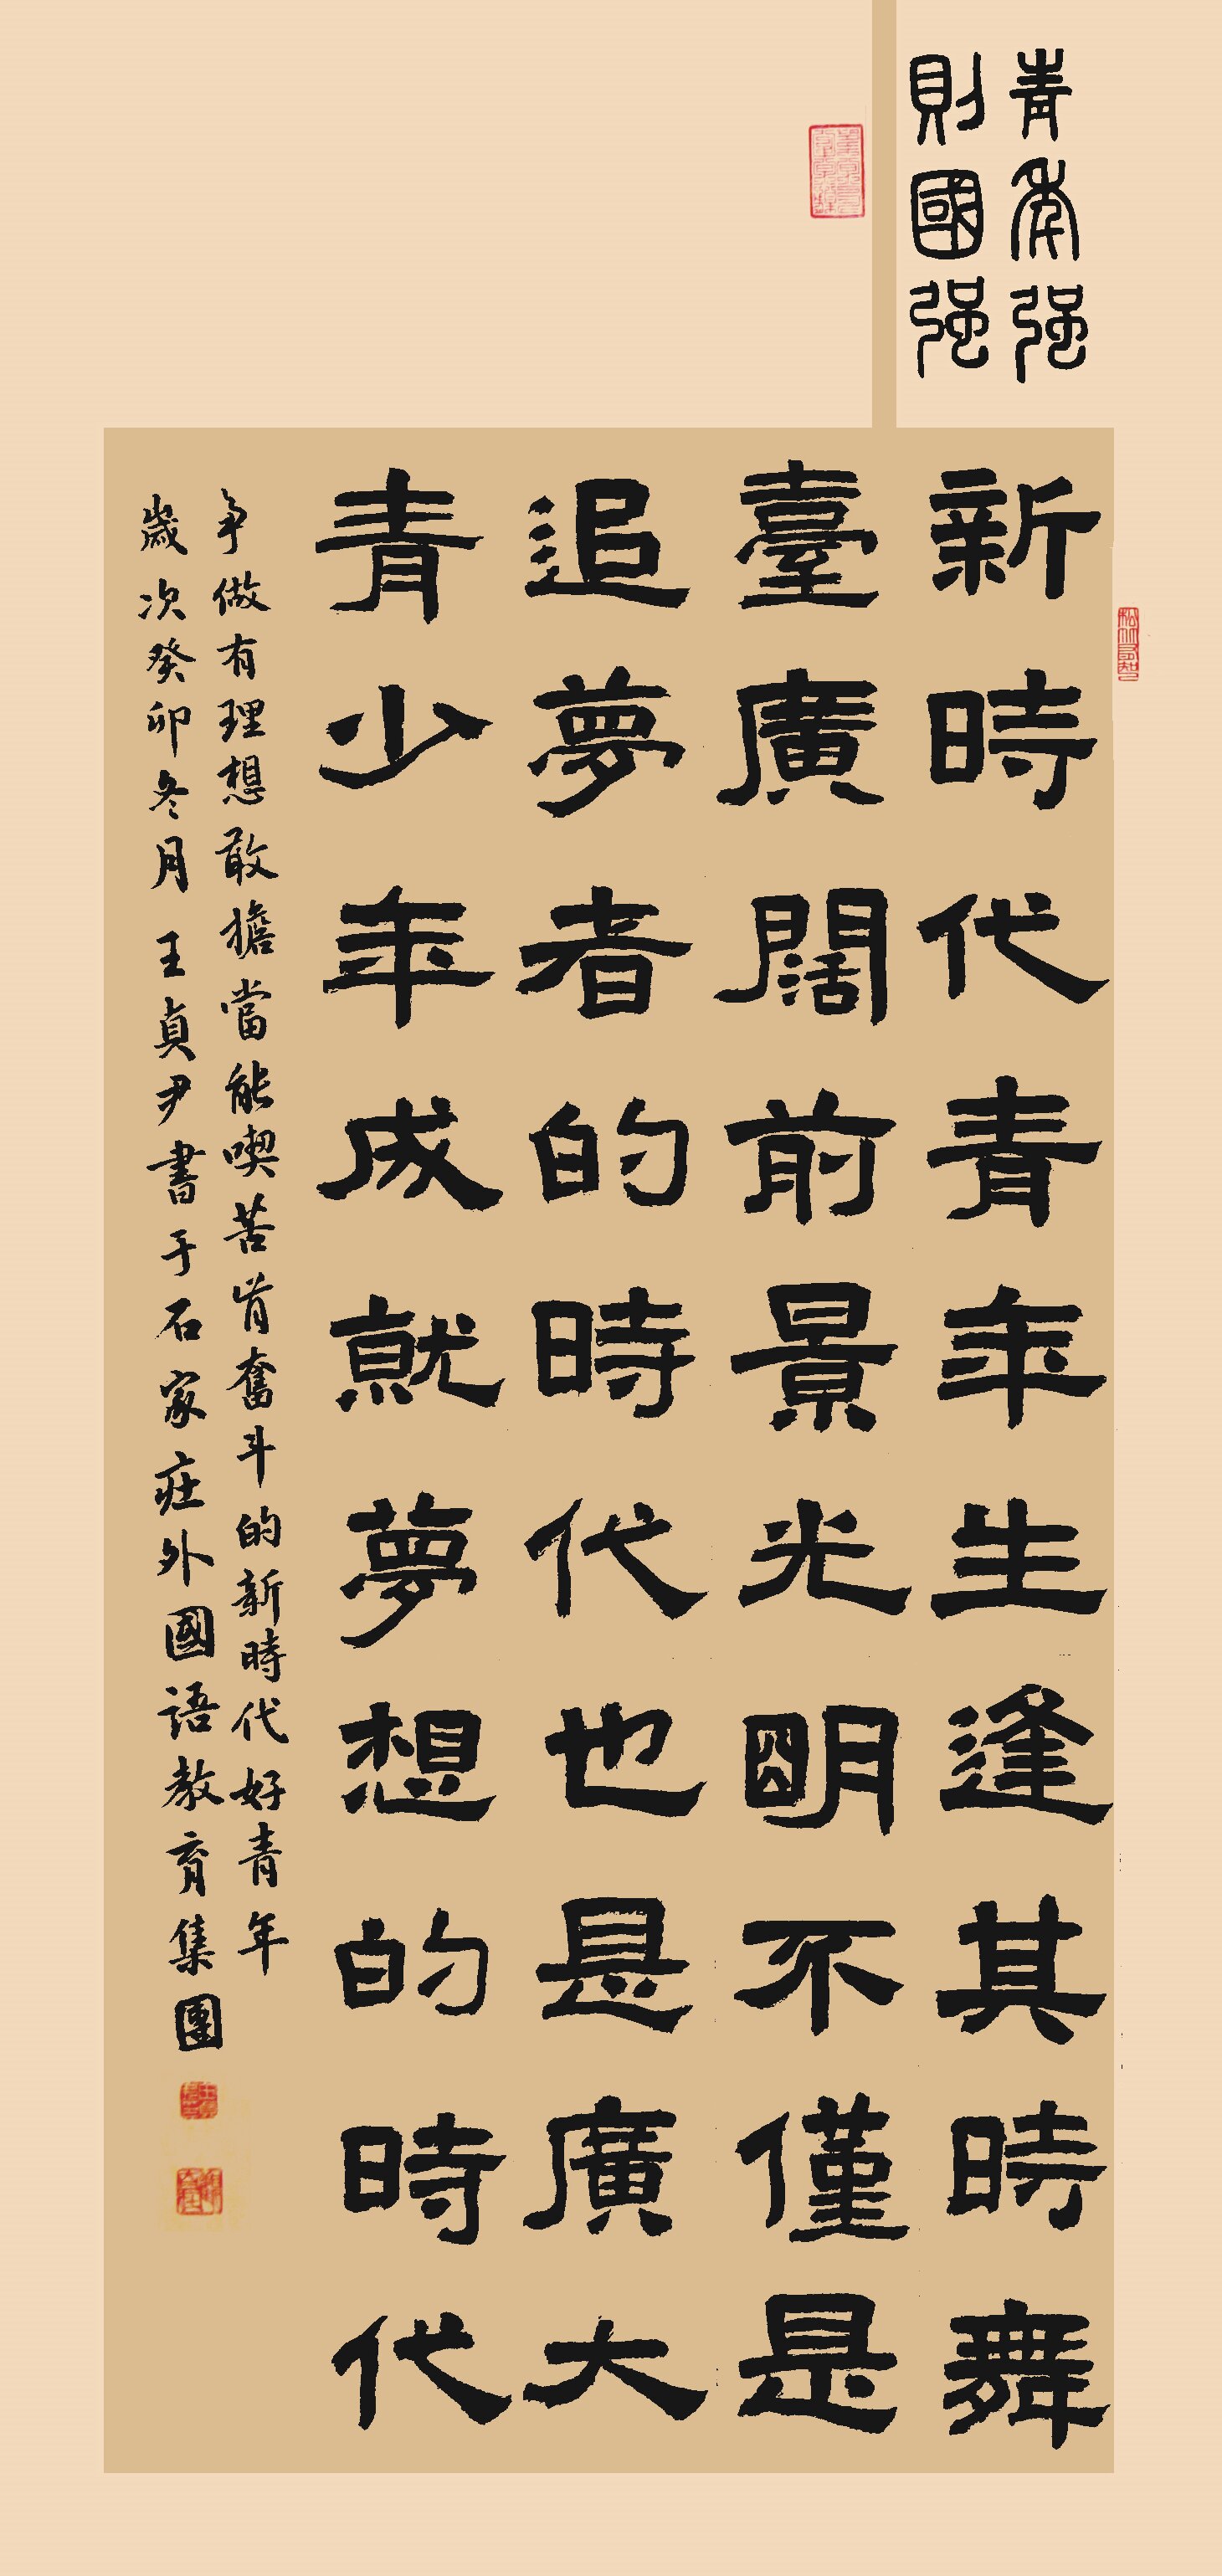 青年强
則國强
新時代青年生逢其時舞
臺廣闊前景光明不僅是
追夢者的時代也是廣大
青少年成就夢想的時代
争做有理想敢擔當能喫苦肯奮斗的新時代好青年
歲次癸卯冬月王貞尹書于石家莊外國語教育集團